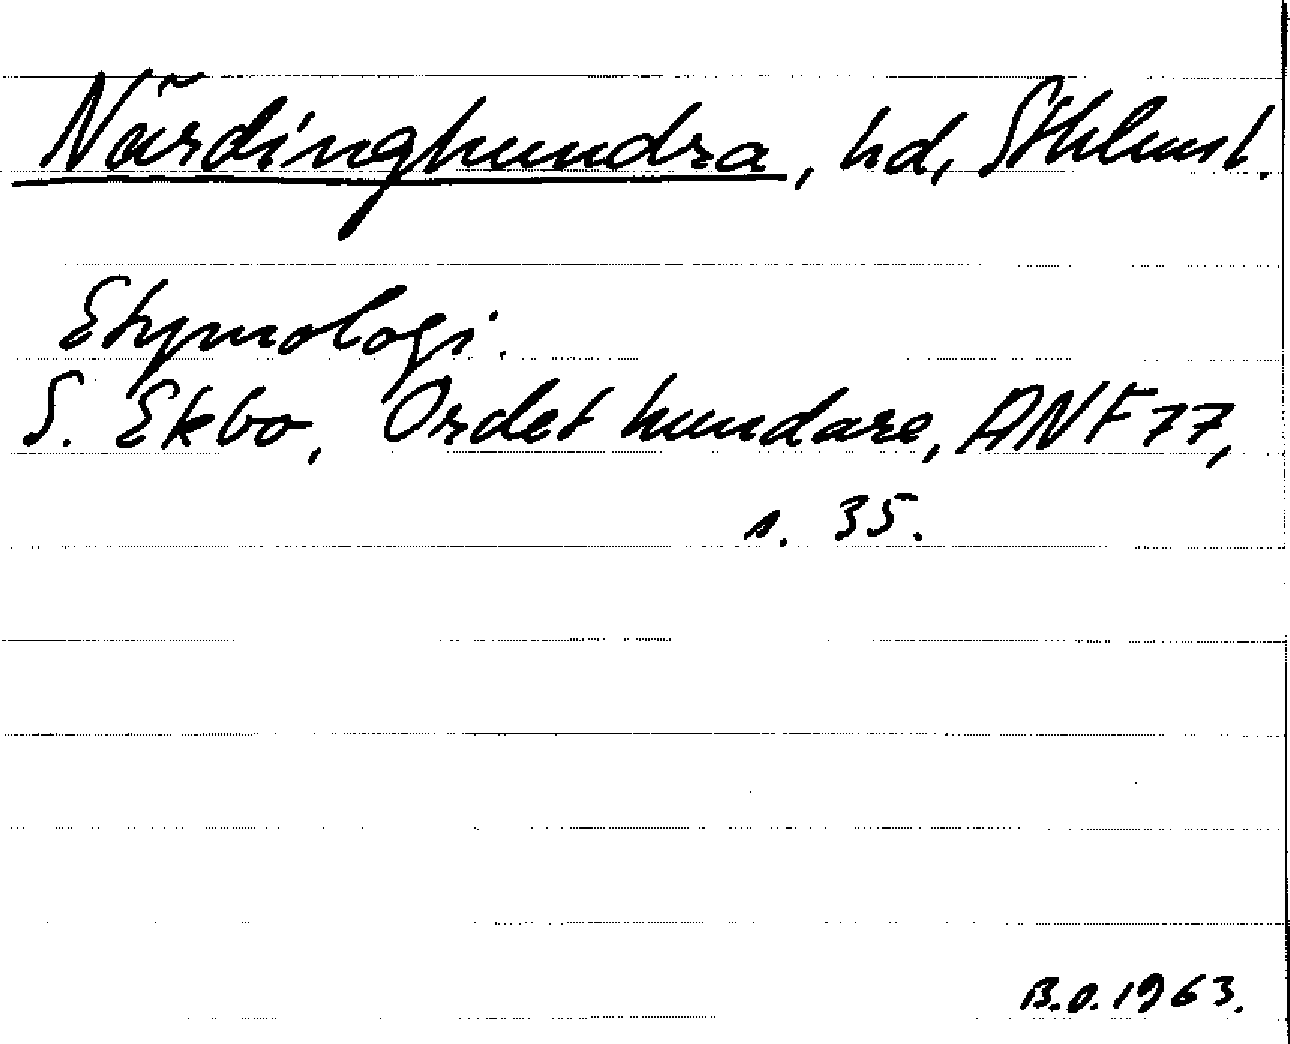 Närdinghundra, hd, Sthlmsl.
Etymologi.
S. Ekbo, Ordet hundare, ANF 77,
s. 35.
B.O. 1963.